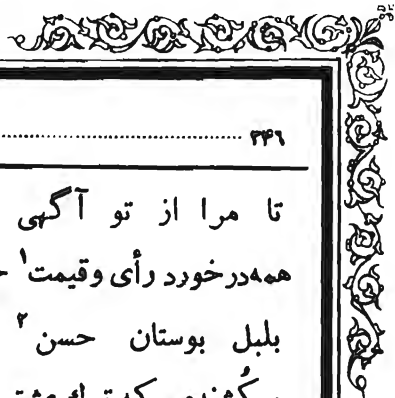 ۳۴۶
تا مرا از تو آگهی
همه‌در خورد رأی و قیمت۱
بلبل بوستان حسن۲